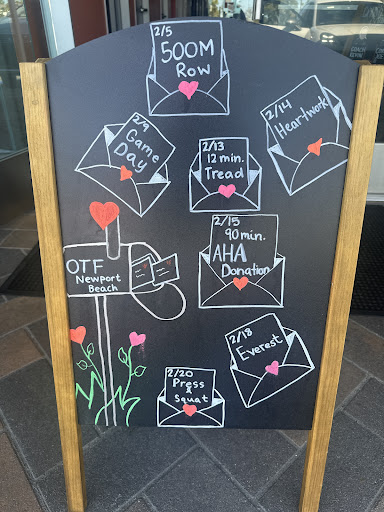 2/5
500M
Row
2/9
Game
Day
2/13
12 min.
Tread
2/14
Heartwork
2/15
90 min.
AHA
Donation
OTF
Newport
Beach
2/18
Everest
2/20
Press
&
Squat